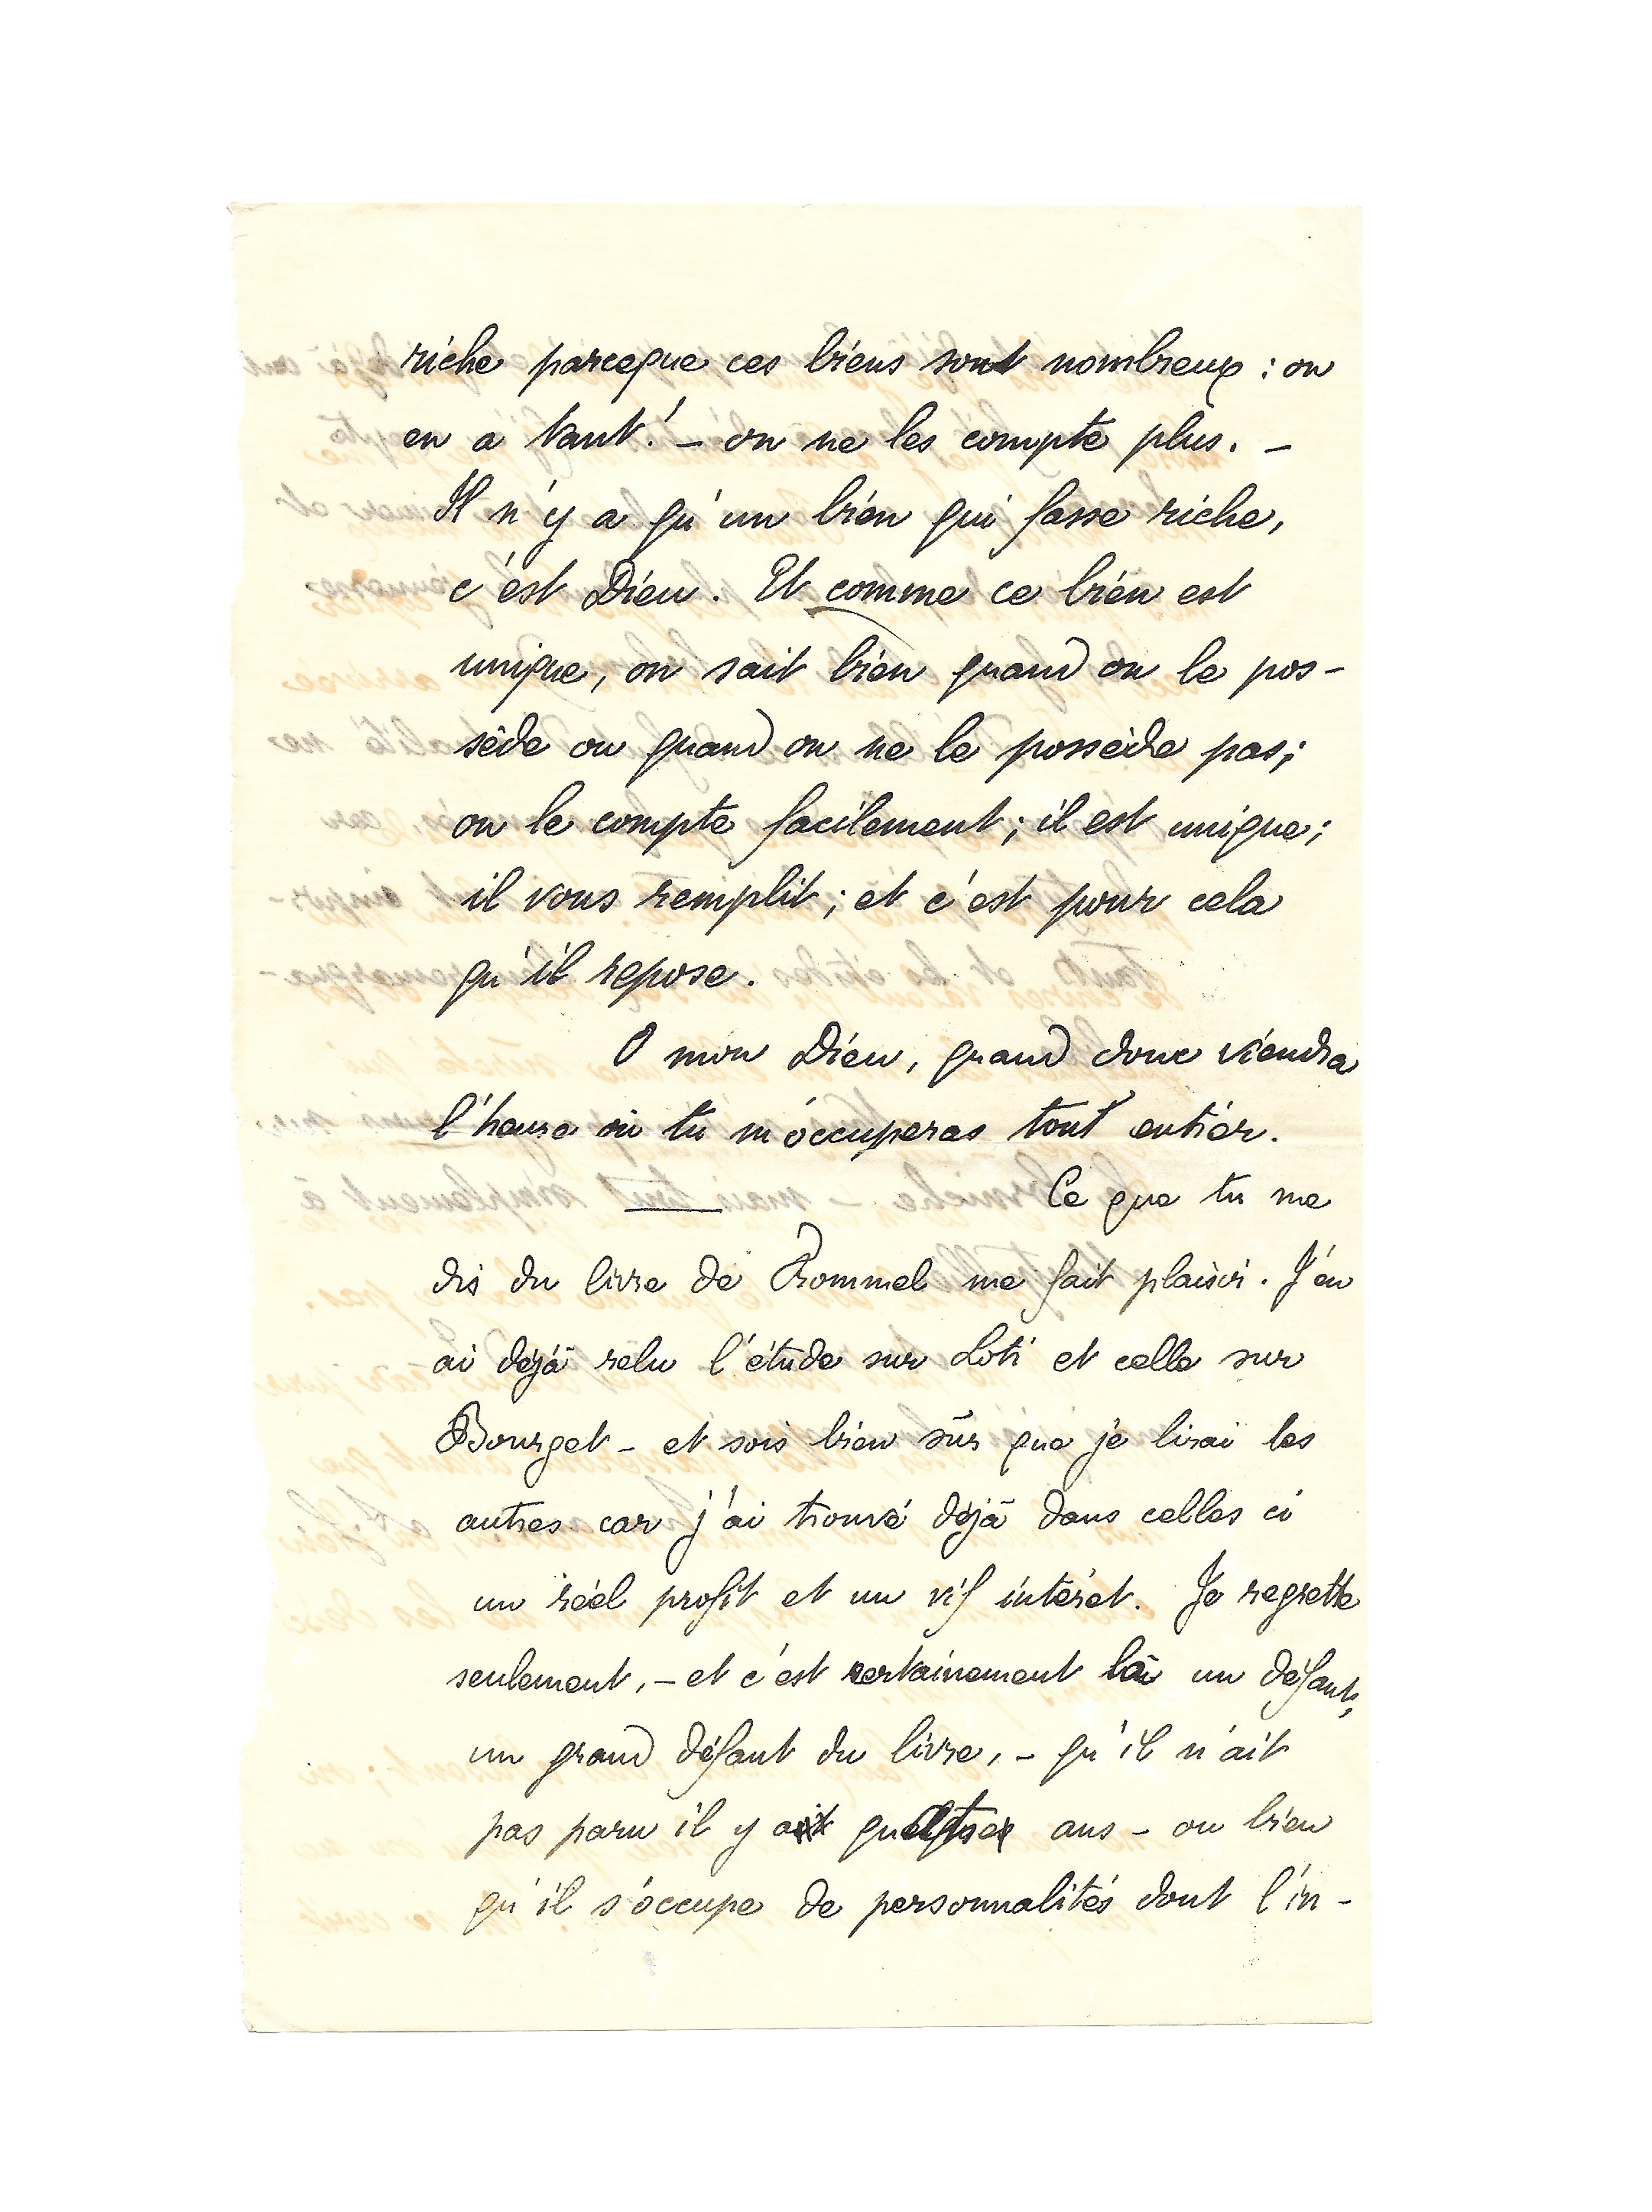 riche parceque ces biens sont nombreux : on
en a tant ! – on ne les compte plus. –
Il n'y a qu'un bien qui fasse riche,
c'est Dieu. Et comme ce bien est
unique, on sait bien quand on le pos-
sède ou quand on ne le possède pas ;
on le compte facilement ; il est unique ;
il vous remplit ; et c'est pour cela
qu'il repose.
O mon Dieu, quand donc viendra
l'heure où tu m'occuperas tout entier.
Ce que tu me
dis du livre de Rommel me fait plaisir. J'en
ai déjà relu l'étude sur Loti et celle sur
Bourget – et sois bien sûr que je lirai les
autres car j'ai trouvé déjà dans celles ci
un réel profit et un vif intérêt. Je regrette
seulement, – et c'est certainement là un défaut,
un grand défaut du livre, – qu'il n'ait
pas paru il y a quatre ans – ou bien
qu'il s'occupe de personnalités dont l'in-